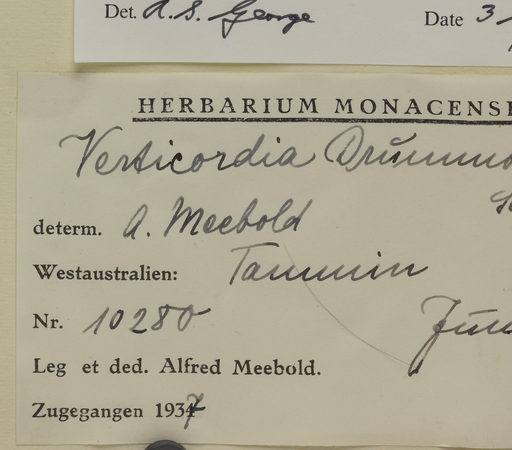 Det. A.S. George Date 3
HERBARIUM MONACENSE
Verticordia Drummo
determ. A. Meebold
Westaustralien: Tammin
Nr. 10280
Leg et ded. Alfred Meebold.
Zugegangen 1937